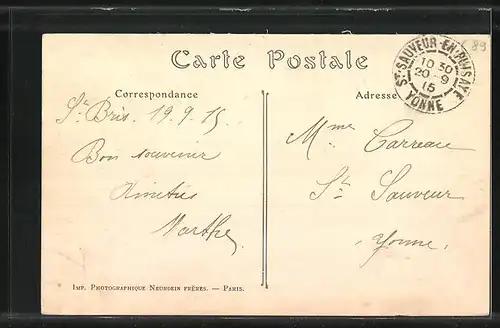 Carte Postale
Correspondance
St Bris. 19.9.15
Bon souvenir
Amitiés
Marthe
IMP. PHOTOGRAPHIQUE NEURDEIN FRÈRES. — PARIS.
ST SAUVEUR-EN-PUISAYE
10 30
20 - 9
15
YONNE
89
Adresse
Mme Carreau
St Sauveur
Yonne